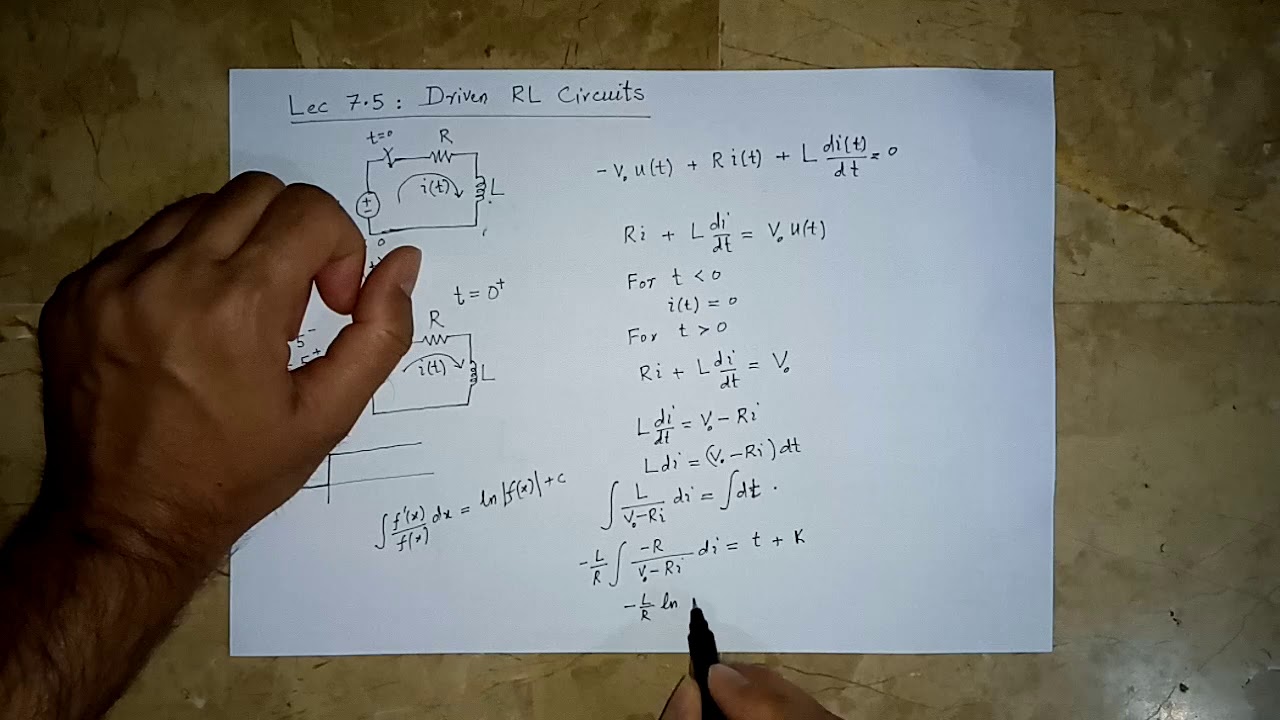 Lec 7.5 : Driven RL Circuits
t=0
R
i(t)
L
+
−
0
t = 0⁺
R
i(t)
L
5⁻
5⁺
∫ f'(x)/f(x) dx = ln|f(x)| + c
-V₀ u(t) + R i(t) + L di(t)/dt = 0
Ri + L di/dt = V₀ u(t)
For t < 0
i(t) = 0
For t > 0
Ri + L di/dt = V₀
L di/dt = V₀ - Ri
L di = (V₀ - Ri) dt
∫ L/(V₀-Ri) di = ∫ dt .
-L/R ∫ -R/(V₀ - Ri) di = t + K
-L/R ln